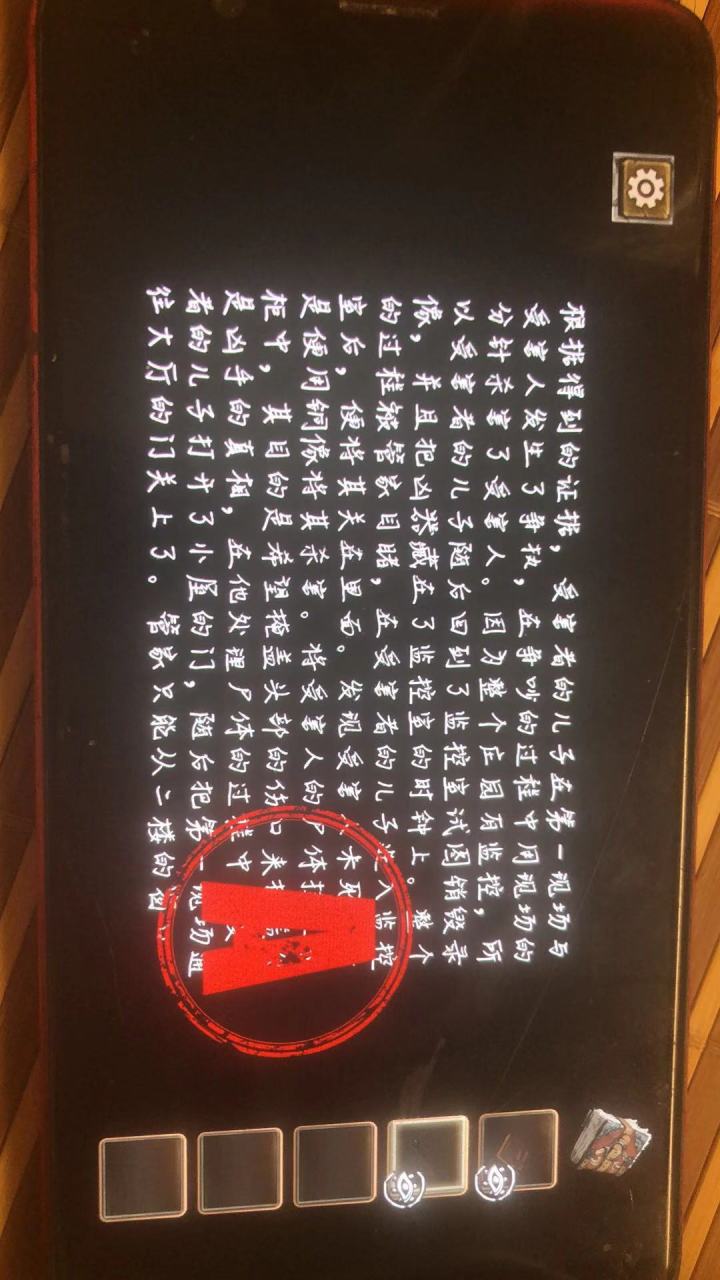 根据得到的证据，受害者的儿子在第一现场与
受害人发生了争执，在争吵的过程中用现场的
分针杀害了受害人。因为整个庄园有监控，所
以受害者的儿子随后回到了监控室试图销毁录
像，并且把凶器藏在了监控室的时钟上。整个
的过程被管家目睹，在受害者的儿子入监控
室后，便将其关在里面。发现受害未死
是便用铜像将其杀害。将受害人的尸体
柜中，其目的是希望掩盖头部的伤口来
是凶手的真相，在他处理尸体的过程中
者的儿子打开了小屋的门，随后把第一现场通
往大厅的门关上了。管家只能从二楼的
A